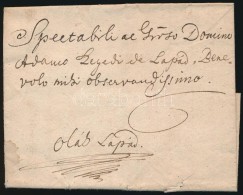 Spectabili ac Gñoso Domino
Adamo Szegedi de Lapád, Bene-
volo mihi observandissimo.
Oláh Lapád.